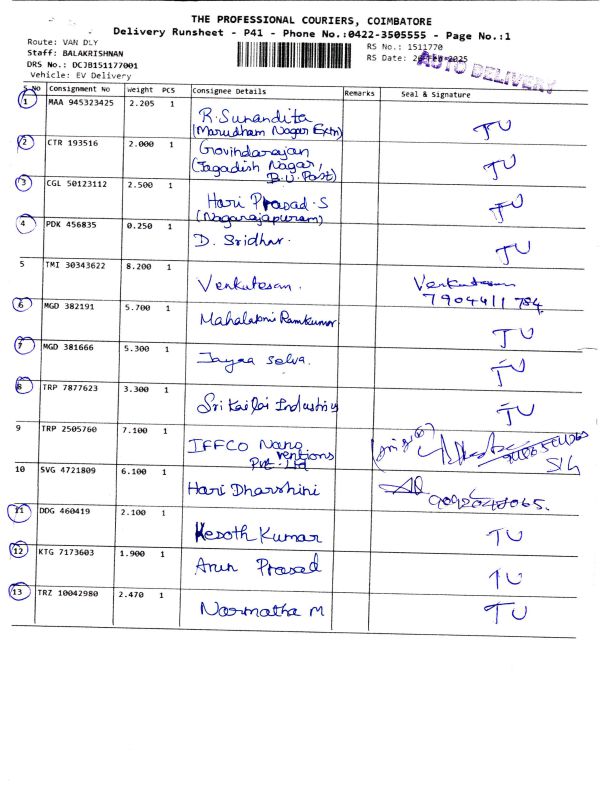 THE PROFESSIONAL COURIERS, COIMBATORE
Delivery Runsheet - P41 - Phone No.:0422-3505555 - Page No.:1
Route: VAN DLY
RS No.: 1511770
Staff: BALAKRISHNAN
RS Date: 2 -FEB-2025
AUTO DELIVERY
DRS No.: DCJB151177001
Vehicle: EV Delivery
S No Consignment No Weight PCS Consignee Details Remarks Seal & Signature
1 MAA 945323425 2.205 1
R. Sunandita
(Marudham Nagar Extn)
TU
2 CTR 193516 2.000 1
Govindarajan
(Jagadish Nagar,
B.U. Post)
TU
3 CGL 50123112 2.500 1
Hari Prasad.S
(Nagarajapuram)
TU
4 PDK 456835 0.250 1
D. Sridhar.
TU
5 TMI 30343622 8.200 1
Venkatesan.
Venkatesan
7904411784
6 MGD 382191 5.700 1
Mahalaxmi Ramkumar
TU
7 MGD 381666 5.300 1
Jayaa selva.
TU
8 TRP 7877623 3.300 1
Sri Kailai Industries
TU
9 TRP 2505760 7.100 1
IFFCO Nano
ventions
Pvt. Ltd
10 SVG 4721809 6.100 1
Hari Dharshini
9092048065.
11 DDG 460419 2.100 1
Kesoth Kumar
TU
12 KTG 7173603 1.900 1
Arun Prasad
TU
13 TRZ 10042980 2.470 1
Narmatha M
TU